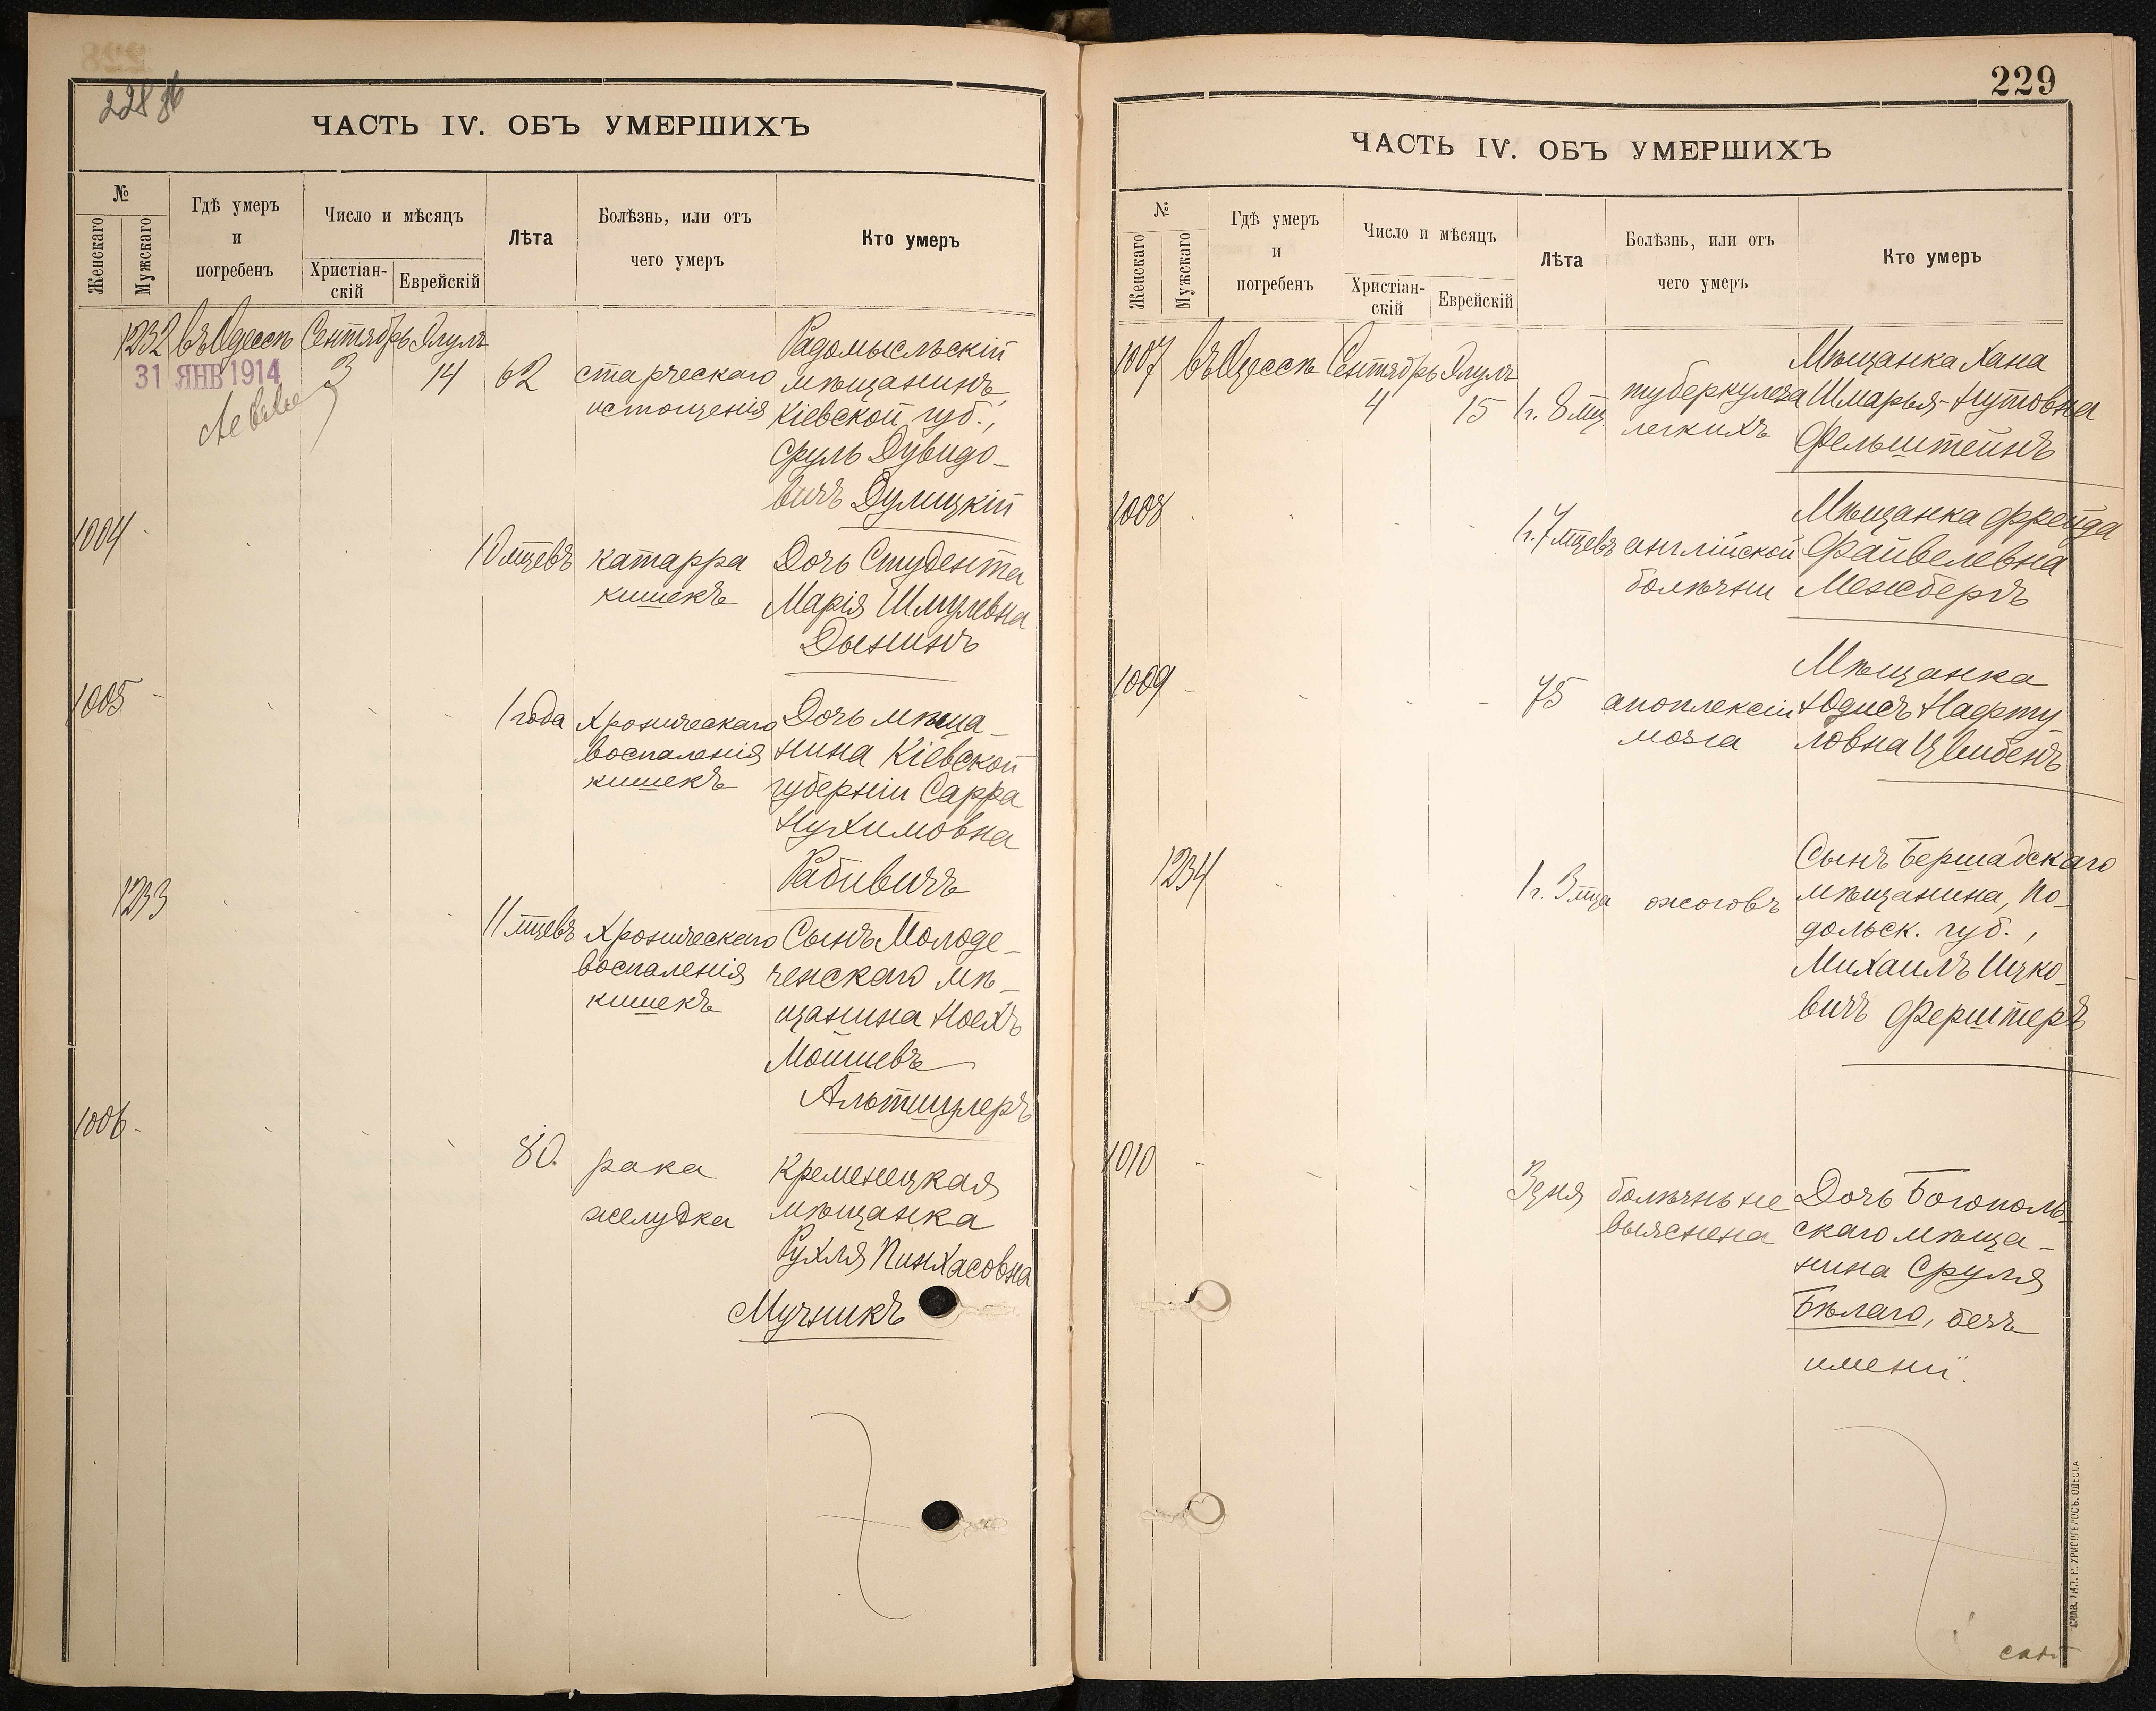 228 об
ЧАСТЬ IV. ОБЪ УМЕРШИХЪ
№
Женскаго
Мужскаго
Гдѣ умеръ
и
погребенъ
Число и мѣсяцъ
Христіан-
скій
Еврейскій
Лѣта
Болѣзнь, или отъ
чего умеръ
Кто умеръ
1232 въ Одессѣ Сентябрь Элулъ
31 ЯНВ 1914
3 14 62 старческаго
истощенія
Радомысльскій
мѣщанинъ,
Кіевской губ.,
Сруль Дувидо-
вичъ Дулицкій
1004
10 мцевъ катарра
кишекъ
Дочь Студента
Марія Шмулевна
Дынинъ
1005
1 года Хроническаго
воспаленія
кишекъ
Дочь мѣща-
нина Кіевской
губерніи Сарра
Нухимовна
Рабивичъ
1233
11 мцевъ Хроническаго
воспаленія
кишекъ
Сынъ Молоде-
ченскаго мѣ-
щанина Ноехъ
Мошиевъ
Альтшулеръ
1006
80. рака
желудка
Кременецкая
мѣщанка
Рухля Пинхасовна
Мучникъ
229
ЧАСТЬ IV. ОБЪ УМЕРШИХЪ
№
Женскаго
Мужскаго
Гдѣ умеръ
и
погребенъ
Число и мѣсяцъ
Христіан-
скій
Еврейскій
Лѣта
Болѣзнь, или отъ
чего умеръ
Кто умеръ
1007 въ Одессѣ Сентябрь Элулъ
4 15 1 г. 8 мц. туберкулеза
легкихъ
Мѣщанка Хана
Шмарья-Нутовна
Фельштейнъ
1008
1 г. 7 мцевъ англійской
болѣзни
Мѣщанка Фрейда
Файвелевна
Межберъ
1009
75 апоплексіи
мозга
Мѣщанка
Юдисъ Нафту
ловна Цвибенъ
1234
1 г. 3 мца ожоговъ
Сынъ Бершадскаго
мѣщанина, По-
дольск. губ.,
Михаилъ Ицко-
вичъ Ферштеръ
1010
3 дня болѣзнь не
выяснена
Дочь Богополь-
скаго мѣща-
нина Сруля
Бѣлаго, безъ
имени.